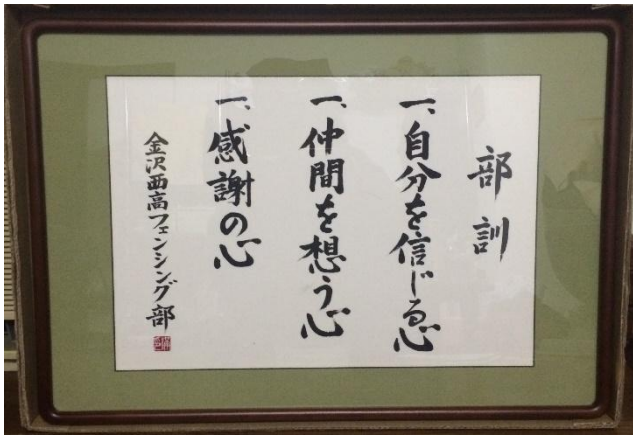 部訓
一、自分を信じる心
一、仲間を想う心
一、感謝の心
金沢西高フェンシング部